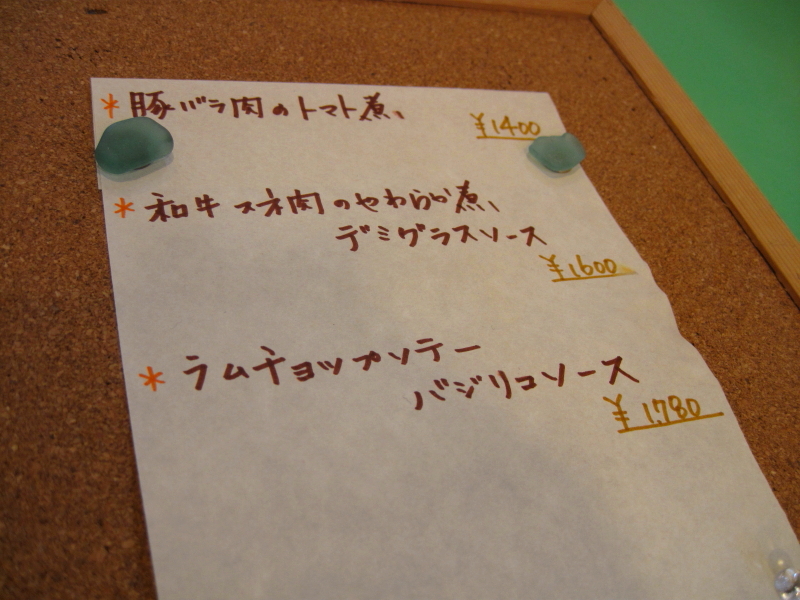 * 豚バラ肉のトマト煮、
¥1400
* 和牛スネ肉のやわらか煮、
デミグラスソース
¥1600
* ラムチョップソテー
バジリコソース
¥1,780